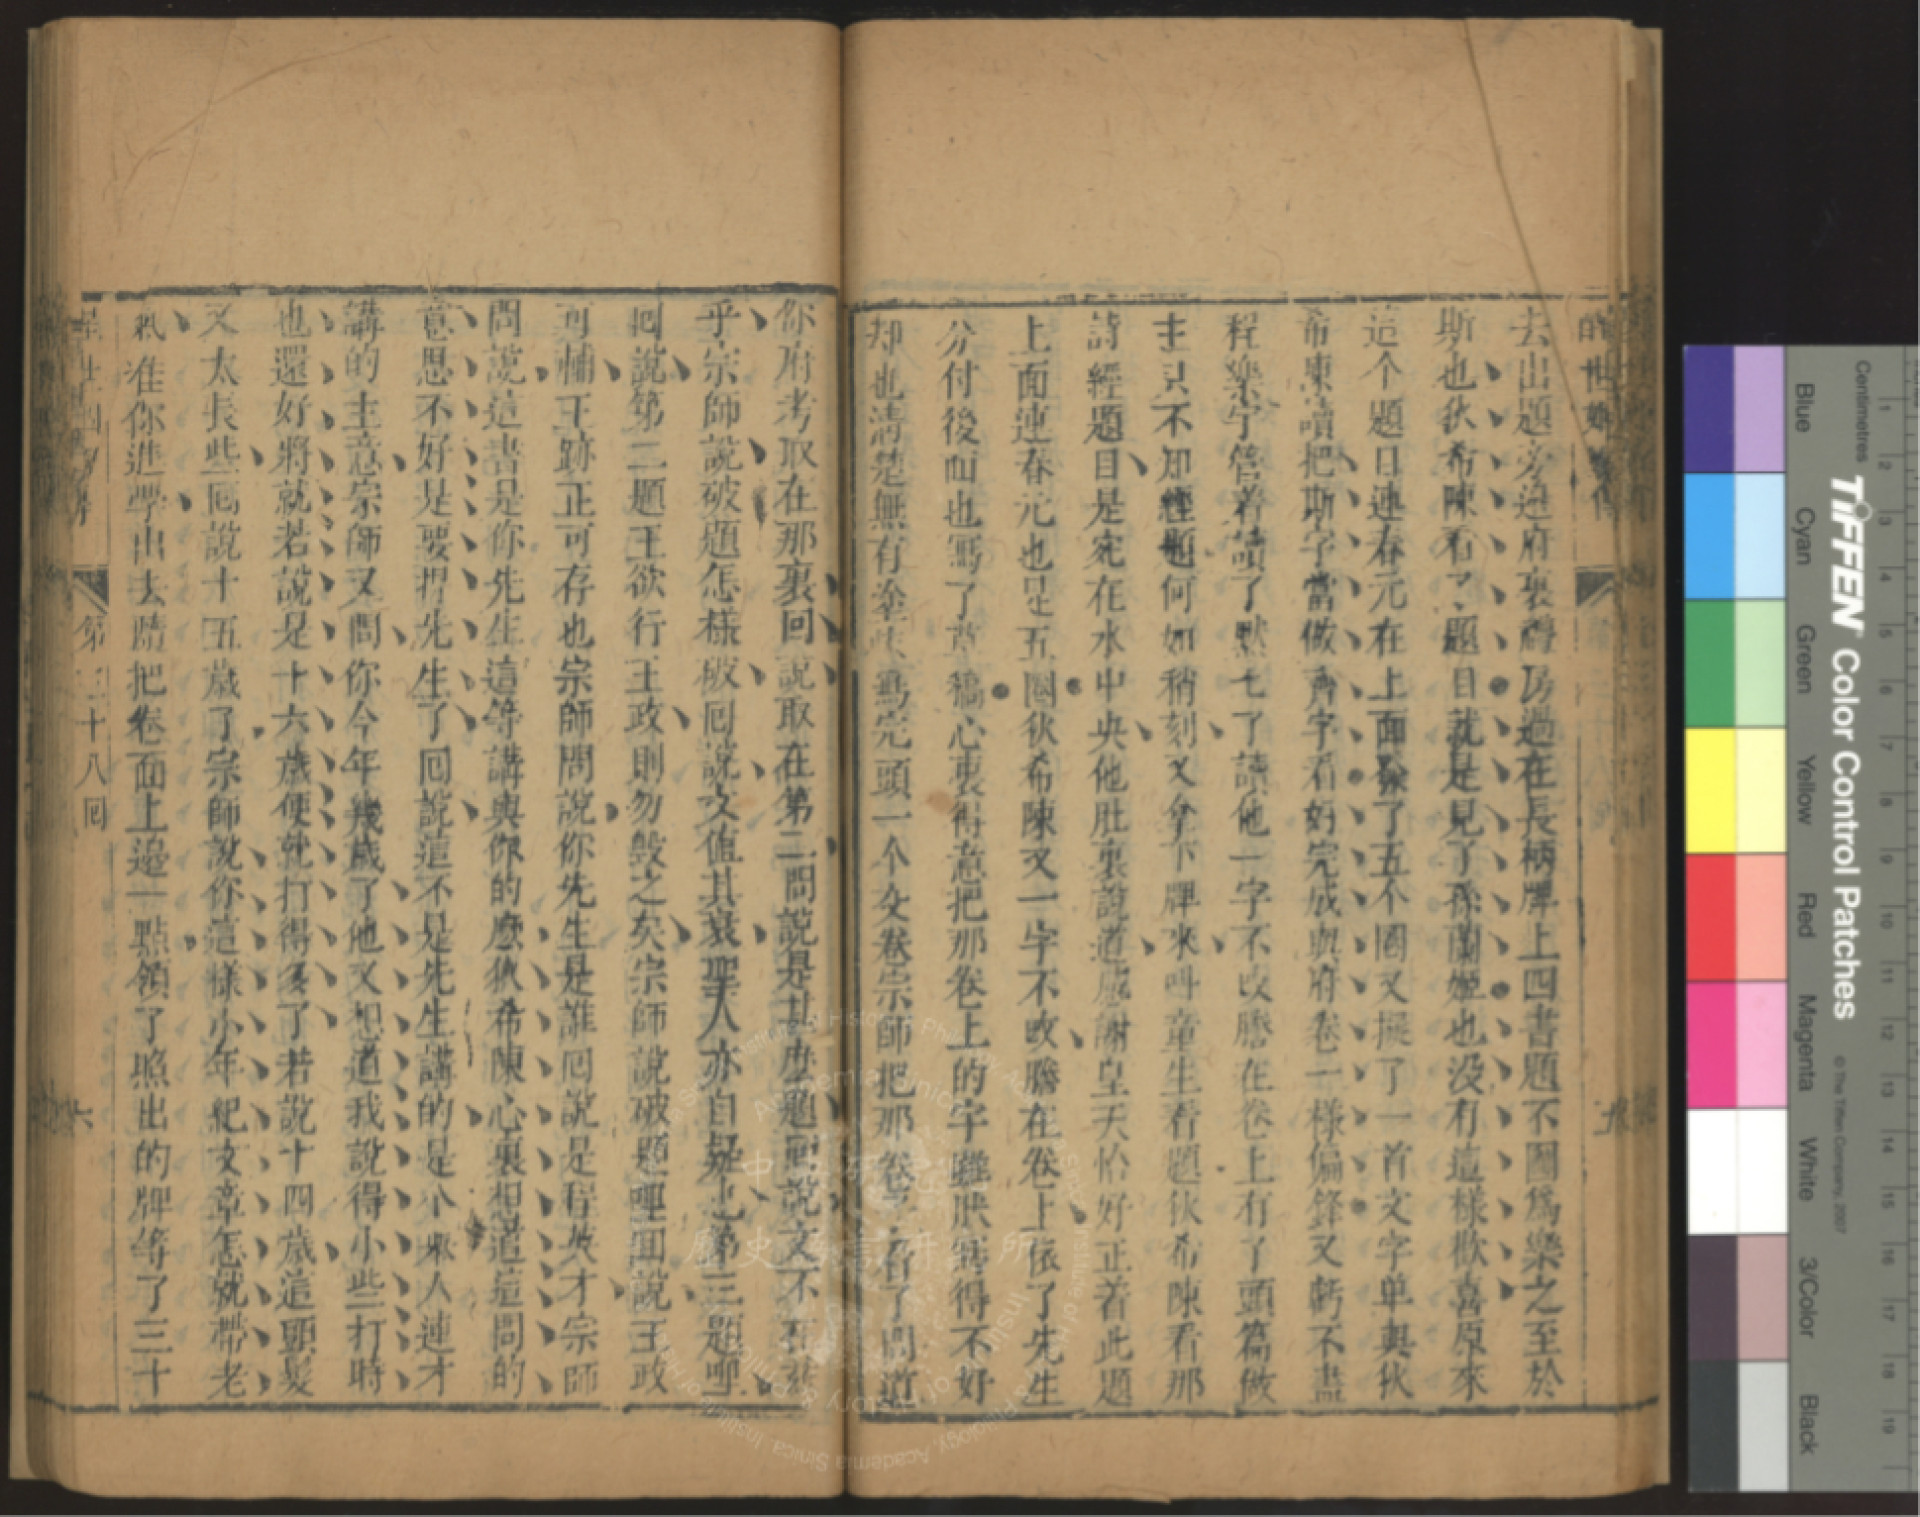 去出題旁邊府裏禮房過在長柄牌上四書題不圖為樂之至於
斯也狄希陳看了題目就是見了孫蘭姬也没有這樣歡喜原來
這个題目連春元在上面除了五个圈又擬了一首文字单與狄
希陳讀把斯字當做齊字看好完成與府卷一樣偏鋒又虧不盡
程樂宇管着讀了熟七了讀他一字不改謄在卷上有了頭篇做
主只不知經題何如稍刻又拿下牌來叫童生看題狄希陳看那
詩經題目是宛在水中央他肚裏說道感謝皇天恰好正着此題
上面連春元也是五圈狄希陳又一字不改謄在卷上依了先生
分付後面也寫了草稿心裏得意把那卷上的字雖狀寫得不好
却也清楚無有塗 寫完頭一个交卷宗師把那卷子看了問道
你府考取在那裏回說取在第二問說是甚麽題回說文不在茲
乎宗師說破題怎樣破回說文值其衰聖人亦自疑也第三題哩
回說第二題王欲行王政則勿毀之矣宗師說破題哩回說王政
可輔王跡正可存也宗師問說你先生是誰回說是程英才宗師
問說這書是你先生這等講與你的麽狄希陳心裏想道這問的
意思不好是要捏先生了回說這不是先生講的是个 人連才
講的主意宗師又問你今年幾歲了他又想道我說得小些打時
也還好將就若說是十六歲便就打得多了若說十四歲這頭髮
又太長些回說十五歲了宗師說你這樣小年紀文章怎就帶老
氣准你進學出去罷把卷面上邊一點領了照出的牌等了三十
第三十八回
六